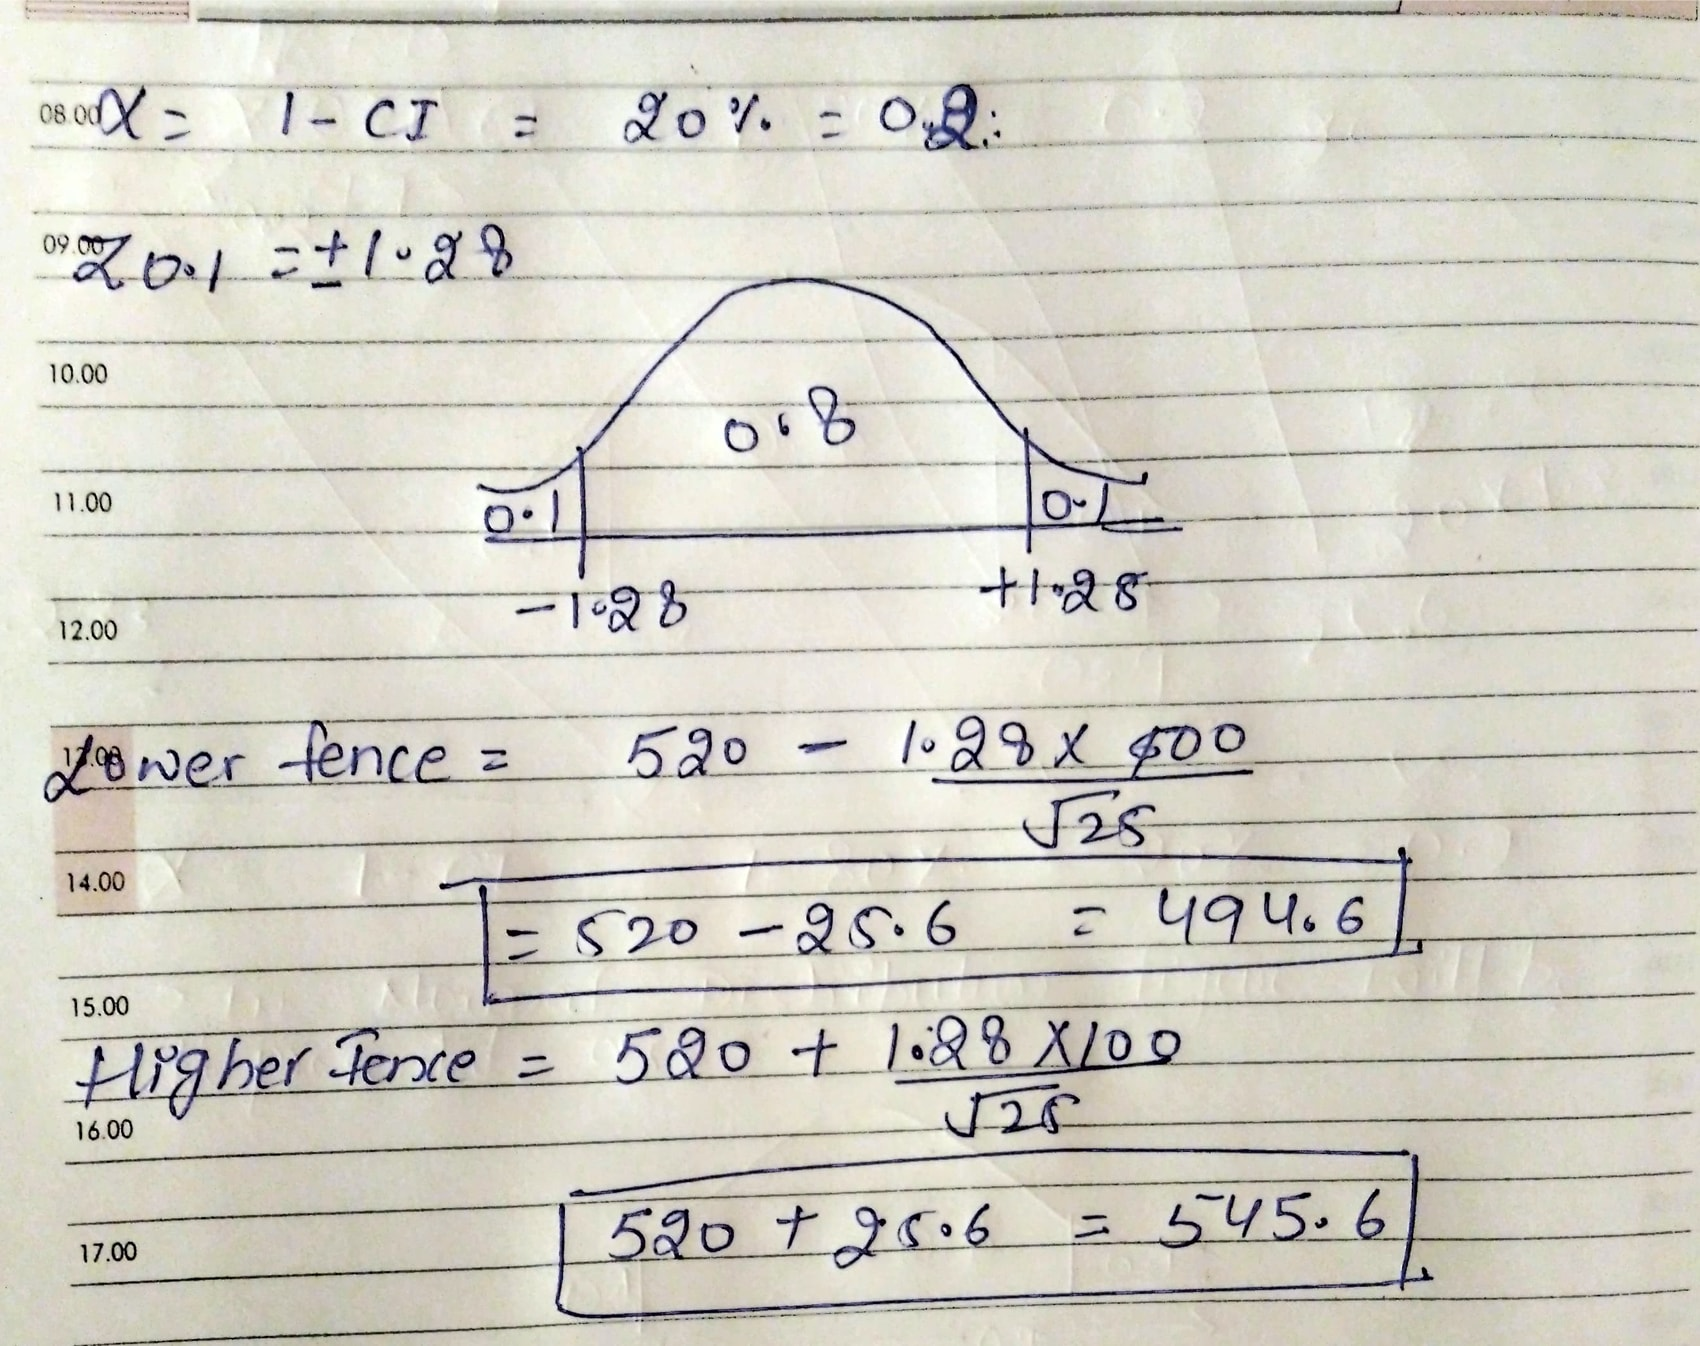 08.00
α = 1 - CI = 20 % = 0.2
09.00
Z 0.1 = ± 1.28
10.00
0.8
11.00
0.1 0.1
-1.28 +1.28
12.00
Lower fence = 520 - 1.28 x 100
√25
14.00
= 520 - 25.6 = 494.6
15.00
Higher Fence = 520 + 1.28 x 100
√25
16.00
520 + 25.6 = 545.6
17.00